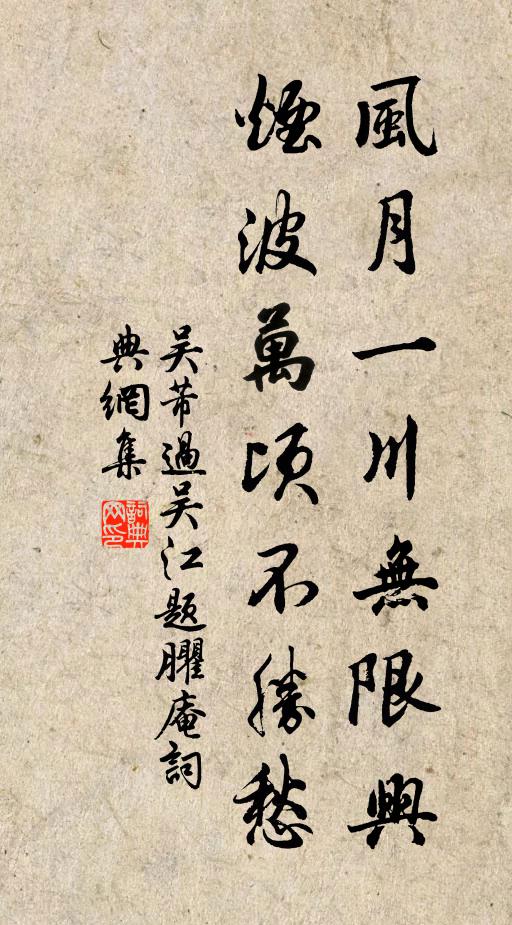 風月一川無限興
煙波萬頃不勝愁
吴芾過吴江題臞庵詞
典網集
詞典網印